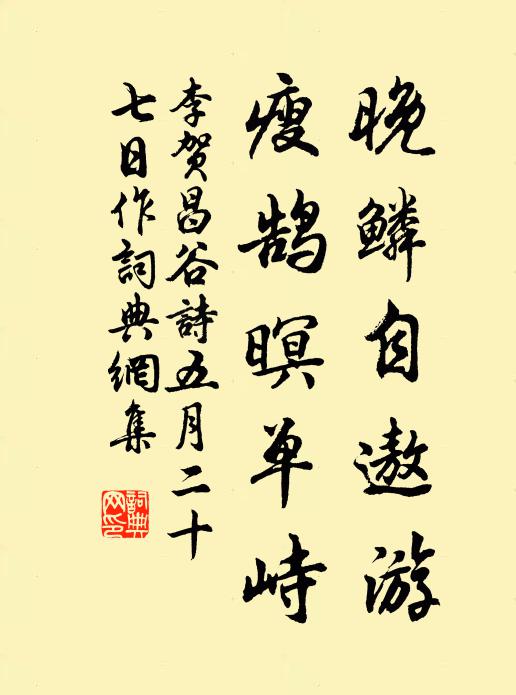 晚鳞自遨游
瘦鹄暝单峙
李賀昌谷詩五月二十
七日作詞典網集
詞典
网印